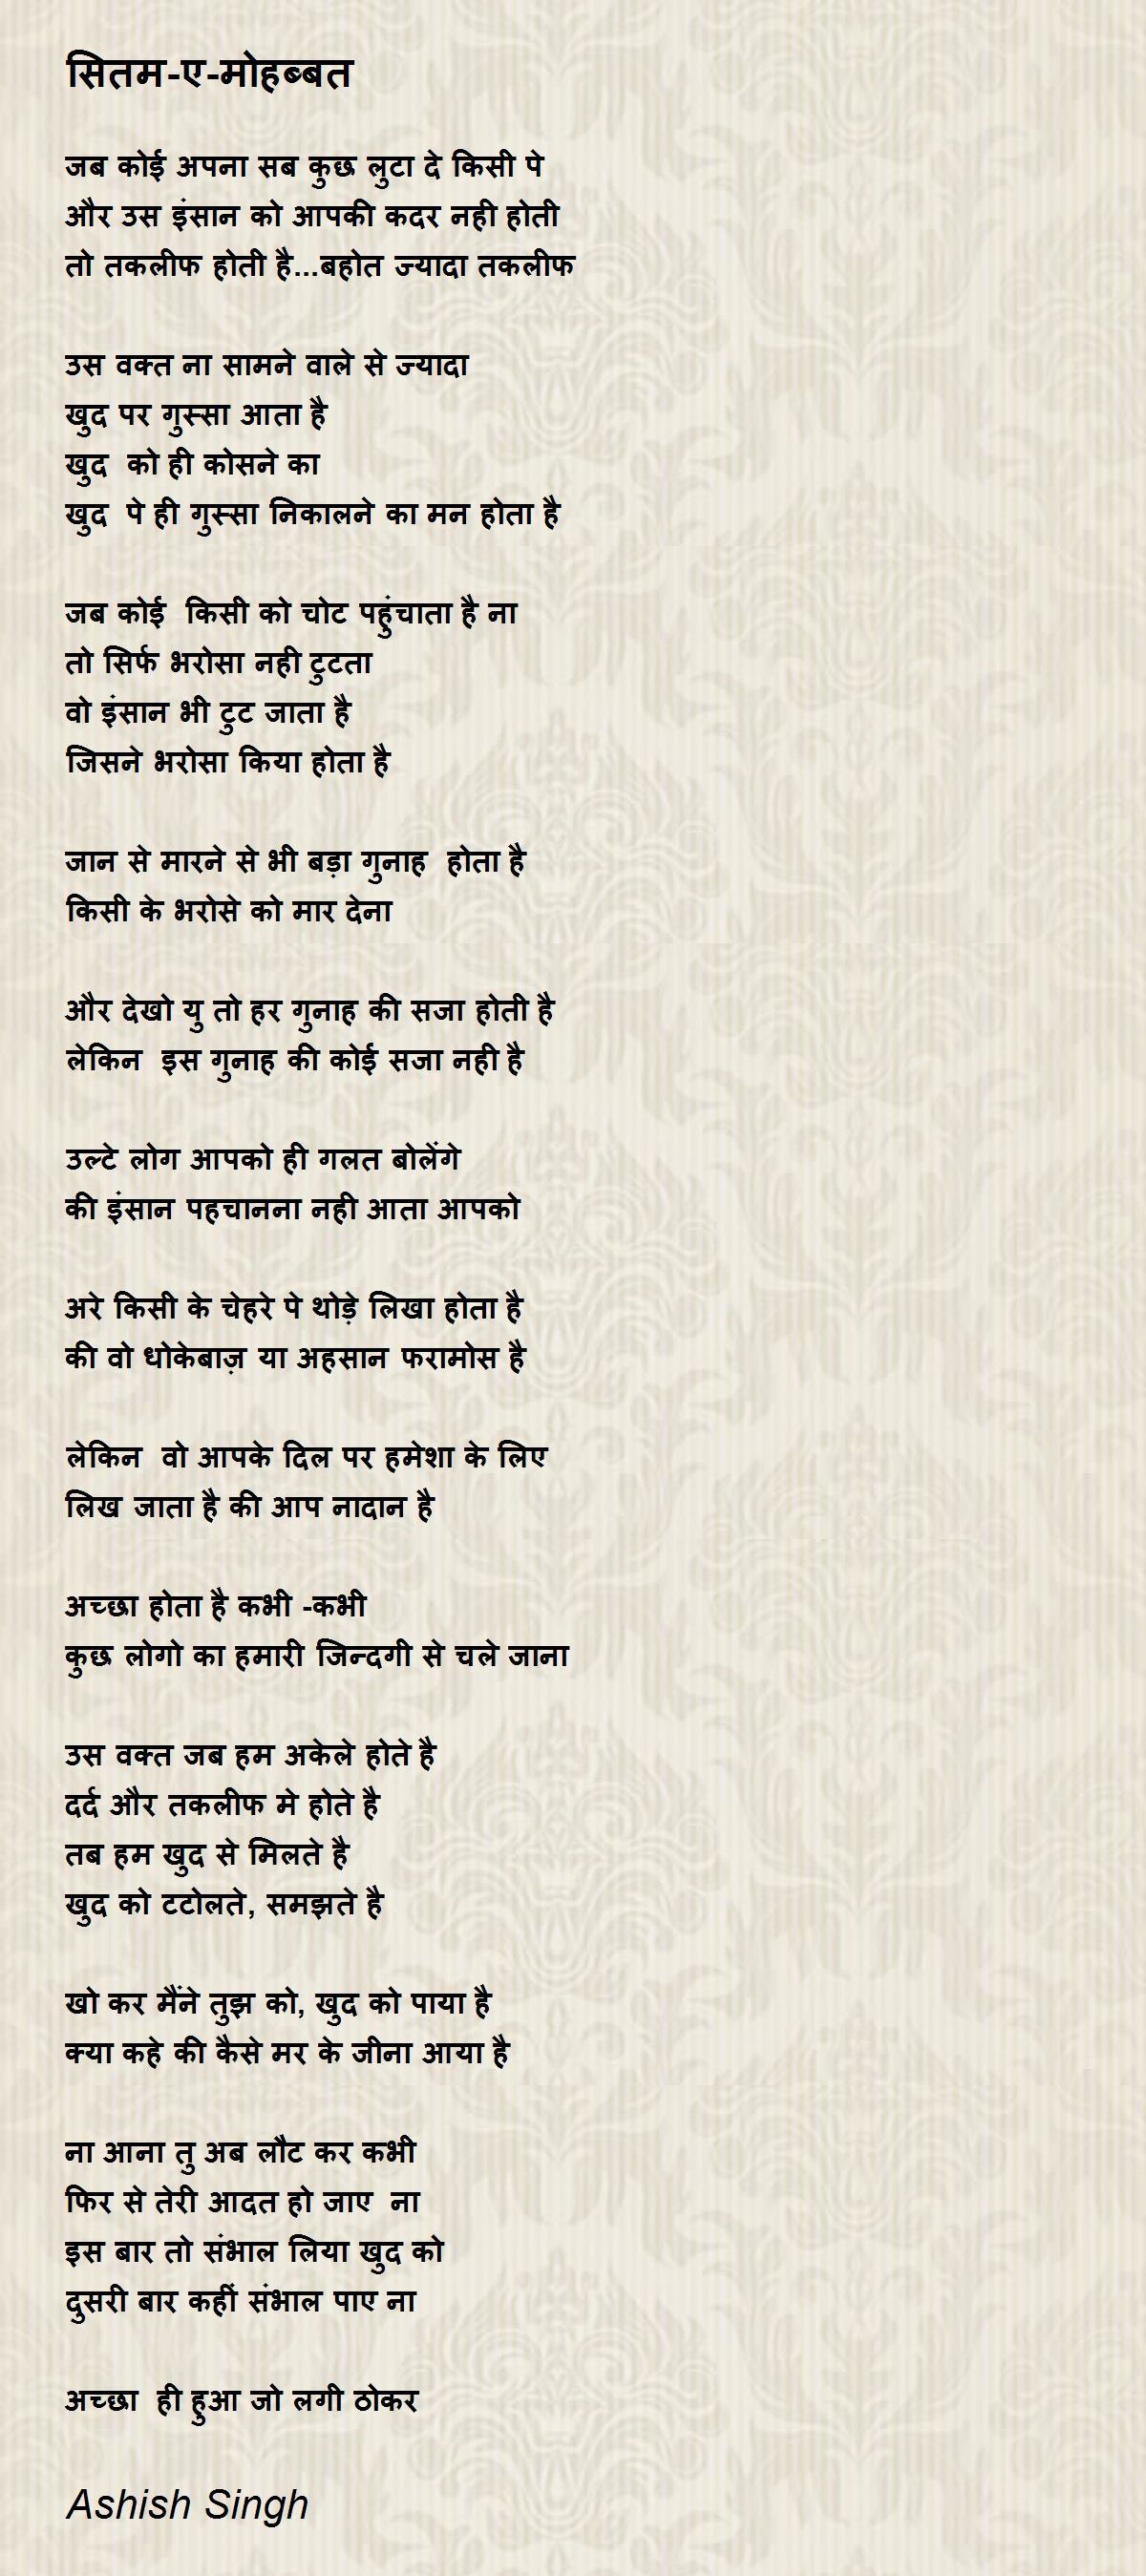 सितम-ए-मोहब्बत
जब कोई अपना सब कुछ लुटा दे किसी पे
और उस इंसान को आपकी कदर नही होती
तो तकलीफ होती है...बहोत ज्यादा तकलीफ
उस वक्त ना सामने वाले से ज्यादा
खुद पर गुस्सा आता है
खुद को ही कोसने का
खुद पे ही गुस्सा निकालने का मन होता है
जब कोई किसी को चोट पहुंचाता है ना
तो सिर्फ भरोसा नही टुटता
वो इंसान भी टुट जाता है
जिसने भरोसा किया होता है
जान से मारने से भी बड़ा गुनाह होता है
किसी के भरोसे को मार देना
और देखो यु तो हर गुनाह की सजा होती है
लेकिन इस गुनाह की कोई सजा नही है
उल्टे लोग आपको ही गलत बोलेंगे
की इंसान पहचानना नही आता आपको
अरे किसी के चेहरे पे थोड़े लिखा होता है
की वो धोकेबाज़ या अहसान फरामोस है
लेकिन वो आपके दिल पर हमेशा के लिए
लिख जाता है की आप नादान है
अच्छा होता है कभी -कभी
कुछ लोगो का हमारी जिन्दगी से चले जाना
उस वक्त जब हम अकेले होते है
दर्द और तकलीफ मे होते है
तब हम खुद से मिलते है
खुद को टटोलते, समझते है
खो कर मैंने तुझ को, खुद को पाया है
क्या कहे की कैसे मर के जीना आया है
ना आना तु अब लौट कर कभी
फिर से तेरी आदत हो जाए ना
इस बार तो संभाल लिया खुद को
दुसरी बार कहीं संभाल पाए ना
अच्छा ही हुआ जो लगी ठोकर
Ashish Singh